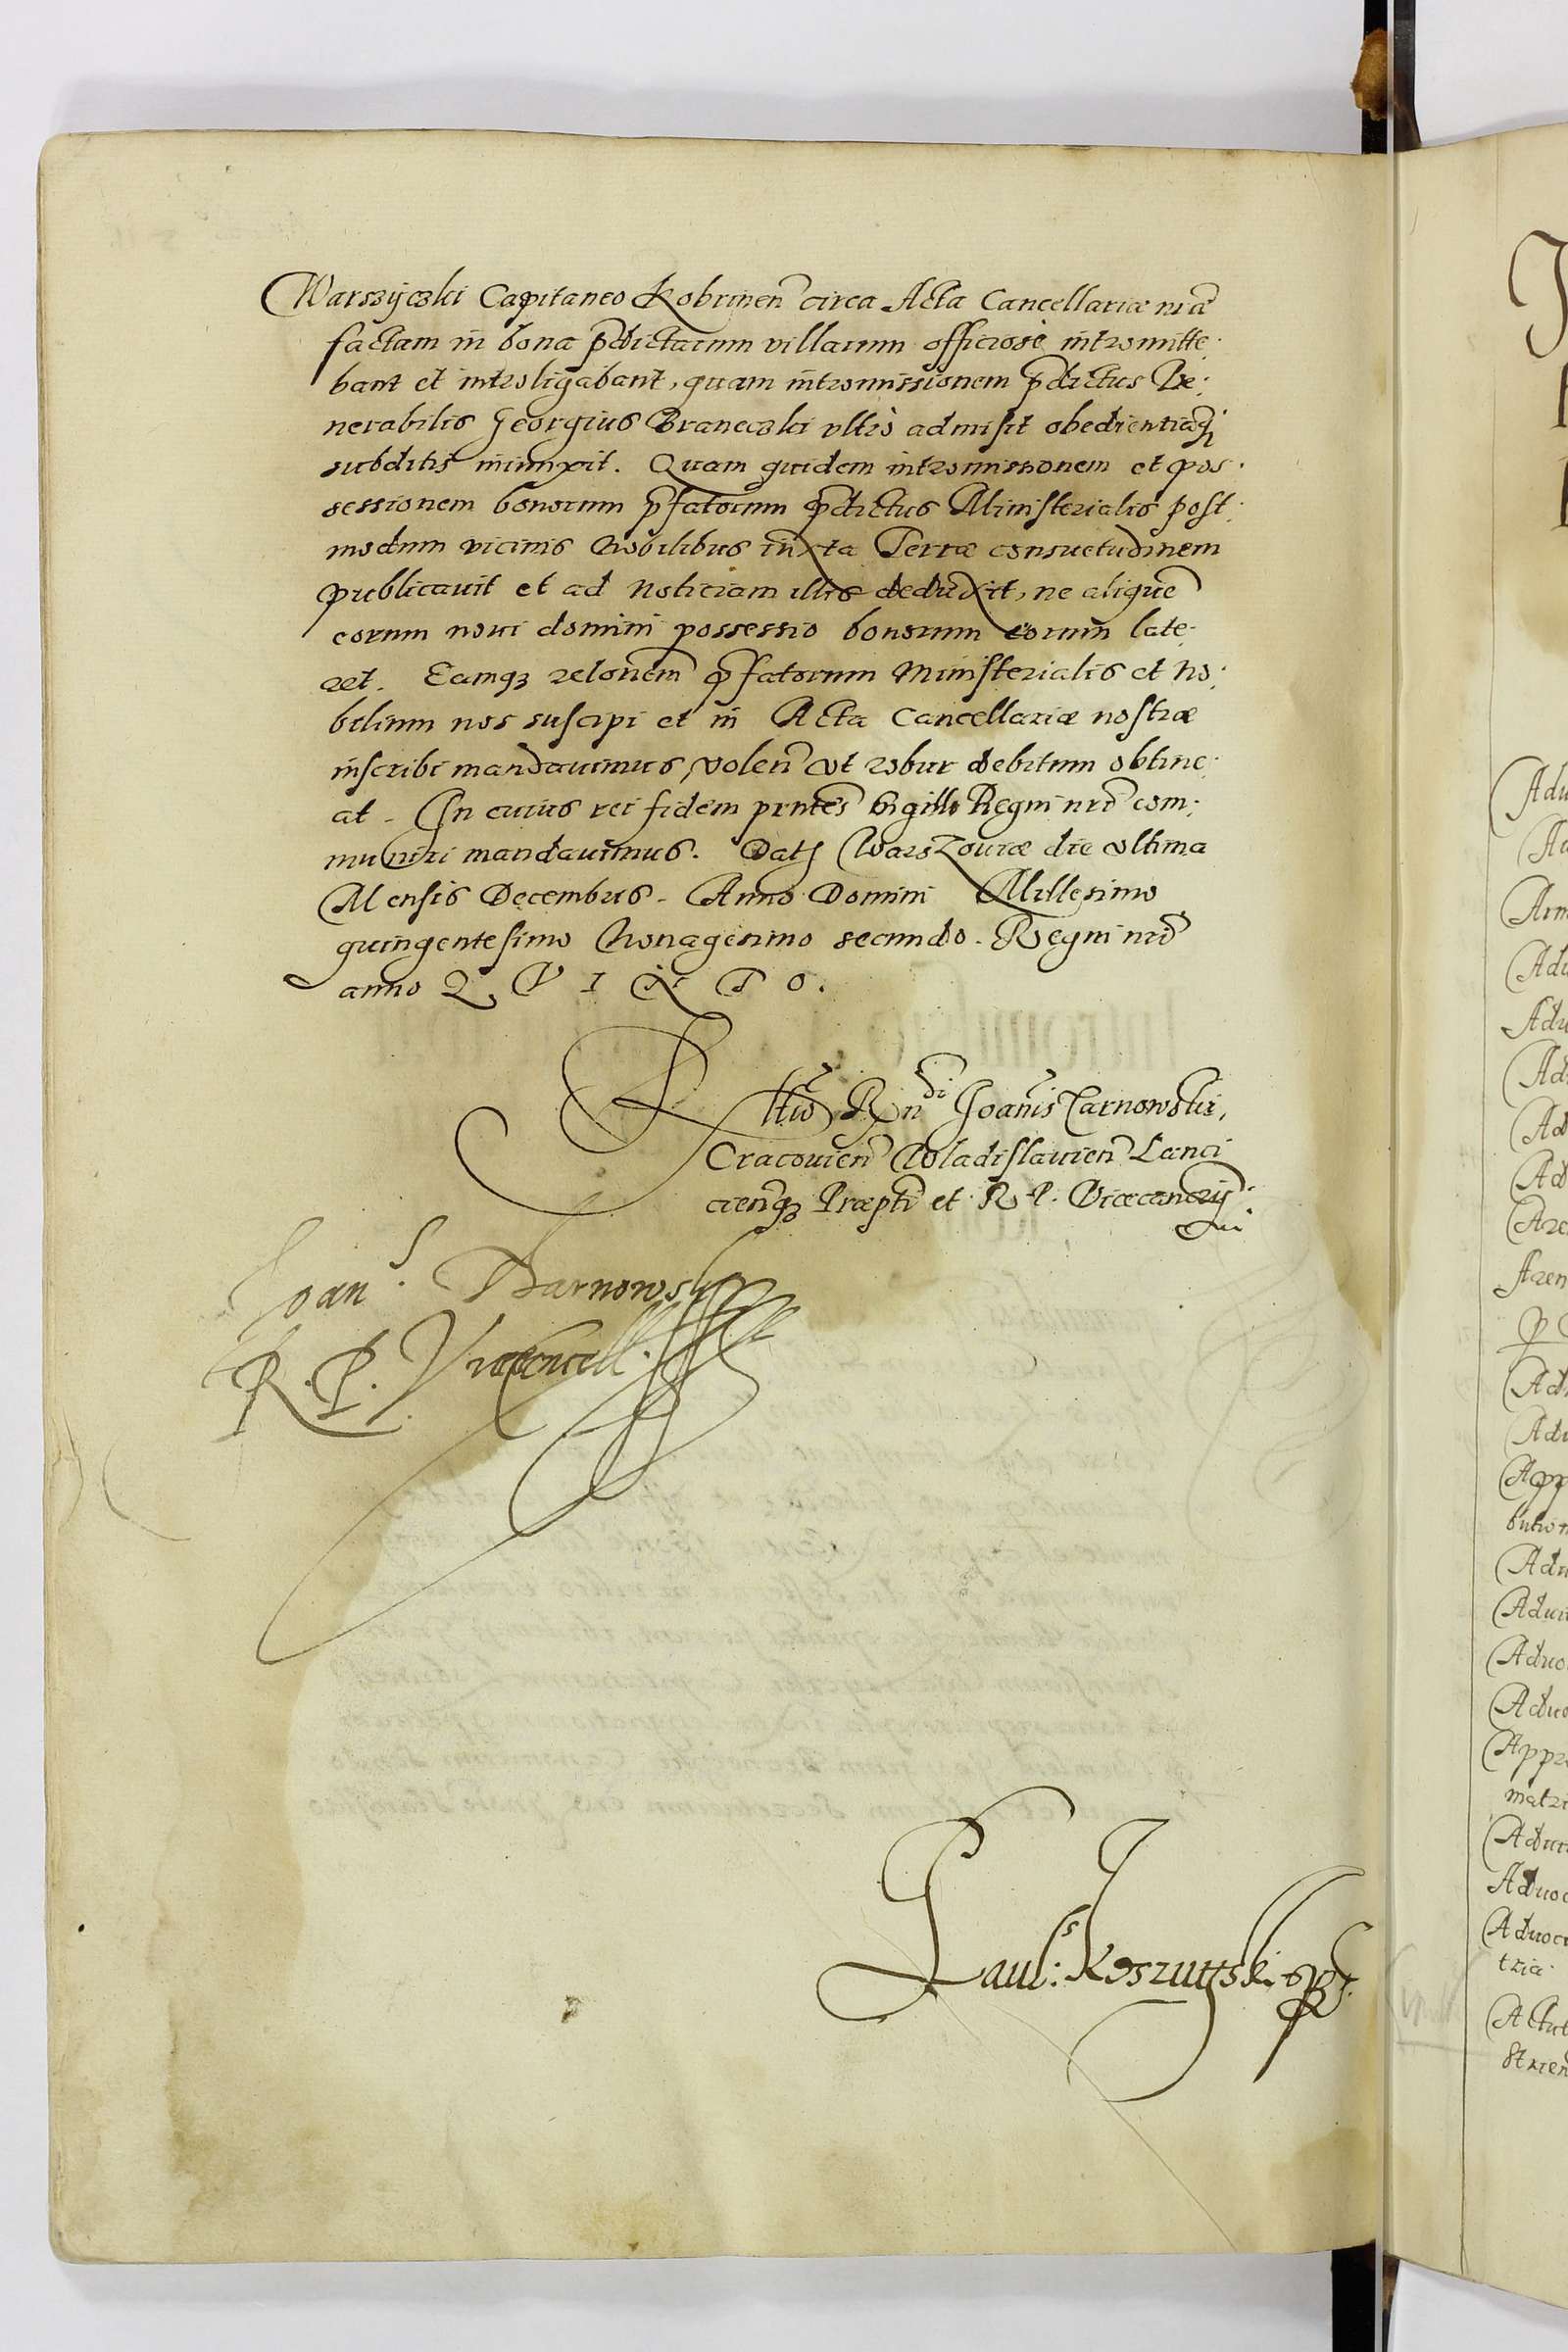 Warszyczki Capitaneo Kobrinen̄ circa Acta Cancellariæ nr̄a
factam in bona p̄dictarum villarum officiose intromitte:
bant et introligabant, quam intromissionem p̄dictus Ve:
nerabilis Georgius Braneczki vltro admisit obedientiāq
subditis iniunxit. Quam quidem intromissionem et pos:
sessionem bonorum p̄fatorum p̄dictus Ministerialis post:
modum vicinis Nobilibus iuxta Terræ consuetudinem
publicavit et ad noticiam illis deduxit, ne aliquē
eorum novi domini possessio bonorum eorum late:
ret. Eamqȝ relonem̄ p̄fatorum Ministerialis et No:
bilium nos suscipi et in Acta Cancellariæ nostræ
inscribi mandavimus, volen̄ vt robur debitum obtine:
at. In cuius rei fidem prn̄tes sigillo Regni nr̄i com:
muniri mandavimus. Datȝ Warszoviæ die vltima
Mensis Decembris. Anno Domini Millesimo
quingentesimo Nonagesimo secundo. Regni nr̄i
anno Q V I N T O.
Rltio Rndi Joan̄is Tarnowski,
Cracovien̄ Wladislavien̄ Lanci
cien̄qȝ Præpti et R. P. Vicecancrij
Joans. Tarnowski
R. P. Vicecancell.
Pauls: Koszutski
Adu
Adu
Adu
Adu
Adui
Aduo
Aduo
matri
Aduoc
Aduoc
tria